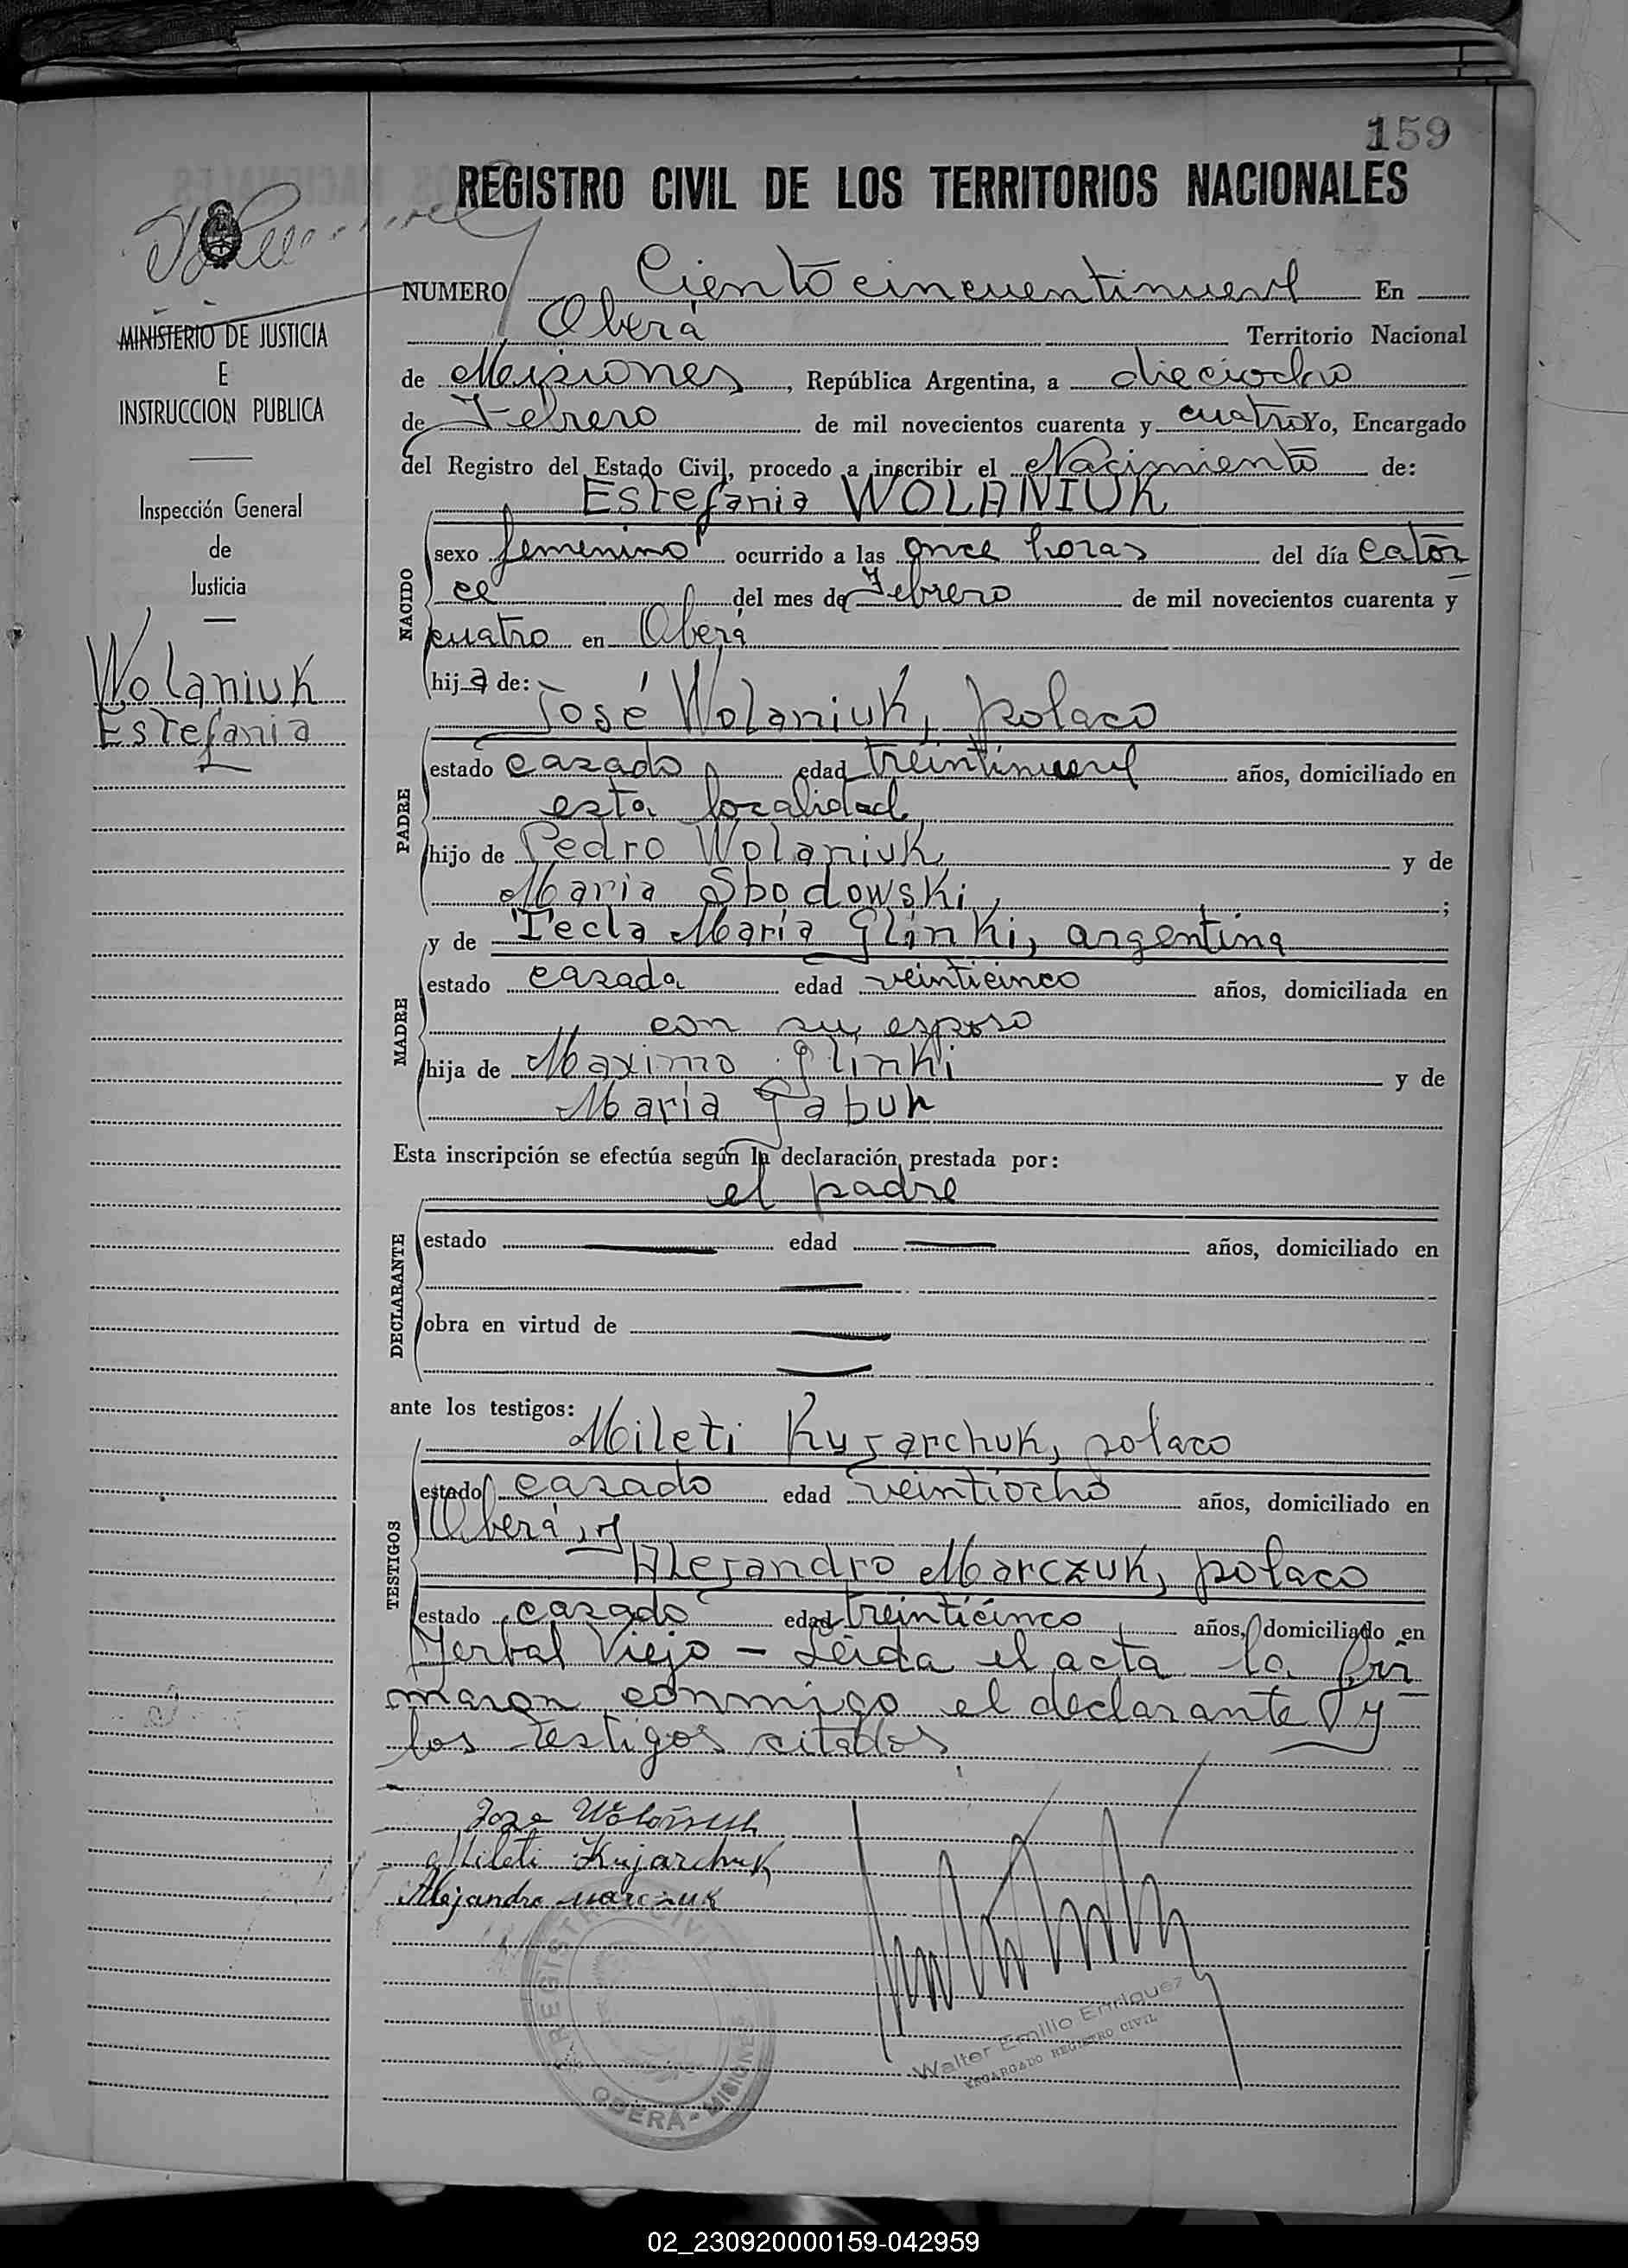 159
REGISTRO CIVIL DE LOS TERRITORIOS NACIONALES
MINISTERIO DE JUSTICIA
E
INSTRUCCION PUBLICA
Inspección General
de
Justicia
Wolaniuk
Estefania
NUMERO Ciento cincuentinueve En
Oberá Territorio Nacional
de Misiones, República Argentina, a dieciocho
de Febrero de mil novecientos cuarenta y cuatro Yo, Encargado
del Registro del Estado Civil, procedo a inscribir el Nacimiento de:
Estefania WOLANIUK
NACIDO
sexo femenino ocurrido a las once horas del día cator
ce del mes de Febrero de mil novecientos cuarenta y
cuatro en Oberá
hija de:
José Wolaniuk, polaco
PADRE
estado casado edad treintinueve años, domiciliado en
esta localidad
hijo de Pedro Wolaniuk y de
Maria Sbodowski ;
y de Tecla María Glinki, argentina
MADRE
estado casada edad veinticinco años, domiciliada en
con su esposo
hija de Maximo Glinki y de
María Gabuk
Esta inscripción se efectúa según la declaración prestada por:
el padre
DECLARANTE
estado edad años, domiciliado en
obra en virtud de
ante los testigos:
Mileti Kujarchuk, polaco
TESTIGOS
estado casado edad veintiocho años, domiciliado en
Oberá, y
Alejandro Marczuk, polaco
estado casado edad treinticinco años, domiciliado en
Yerbal Viejo - Leida el acta la fir
maron conmigo el declarante y
los testigos citados
Mileti Kujarchuk
Alejandro Marczuk
REGISTRO CIVIL
OBERA - MISIONES
Walter Emilio Enriquez
ENCARGADO REGISTRO CIVIL
02_230920000159-042959